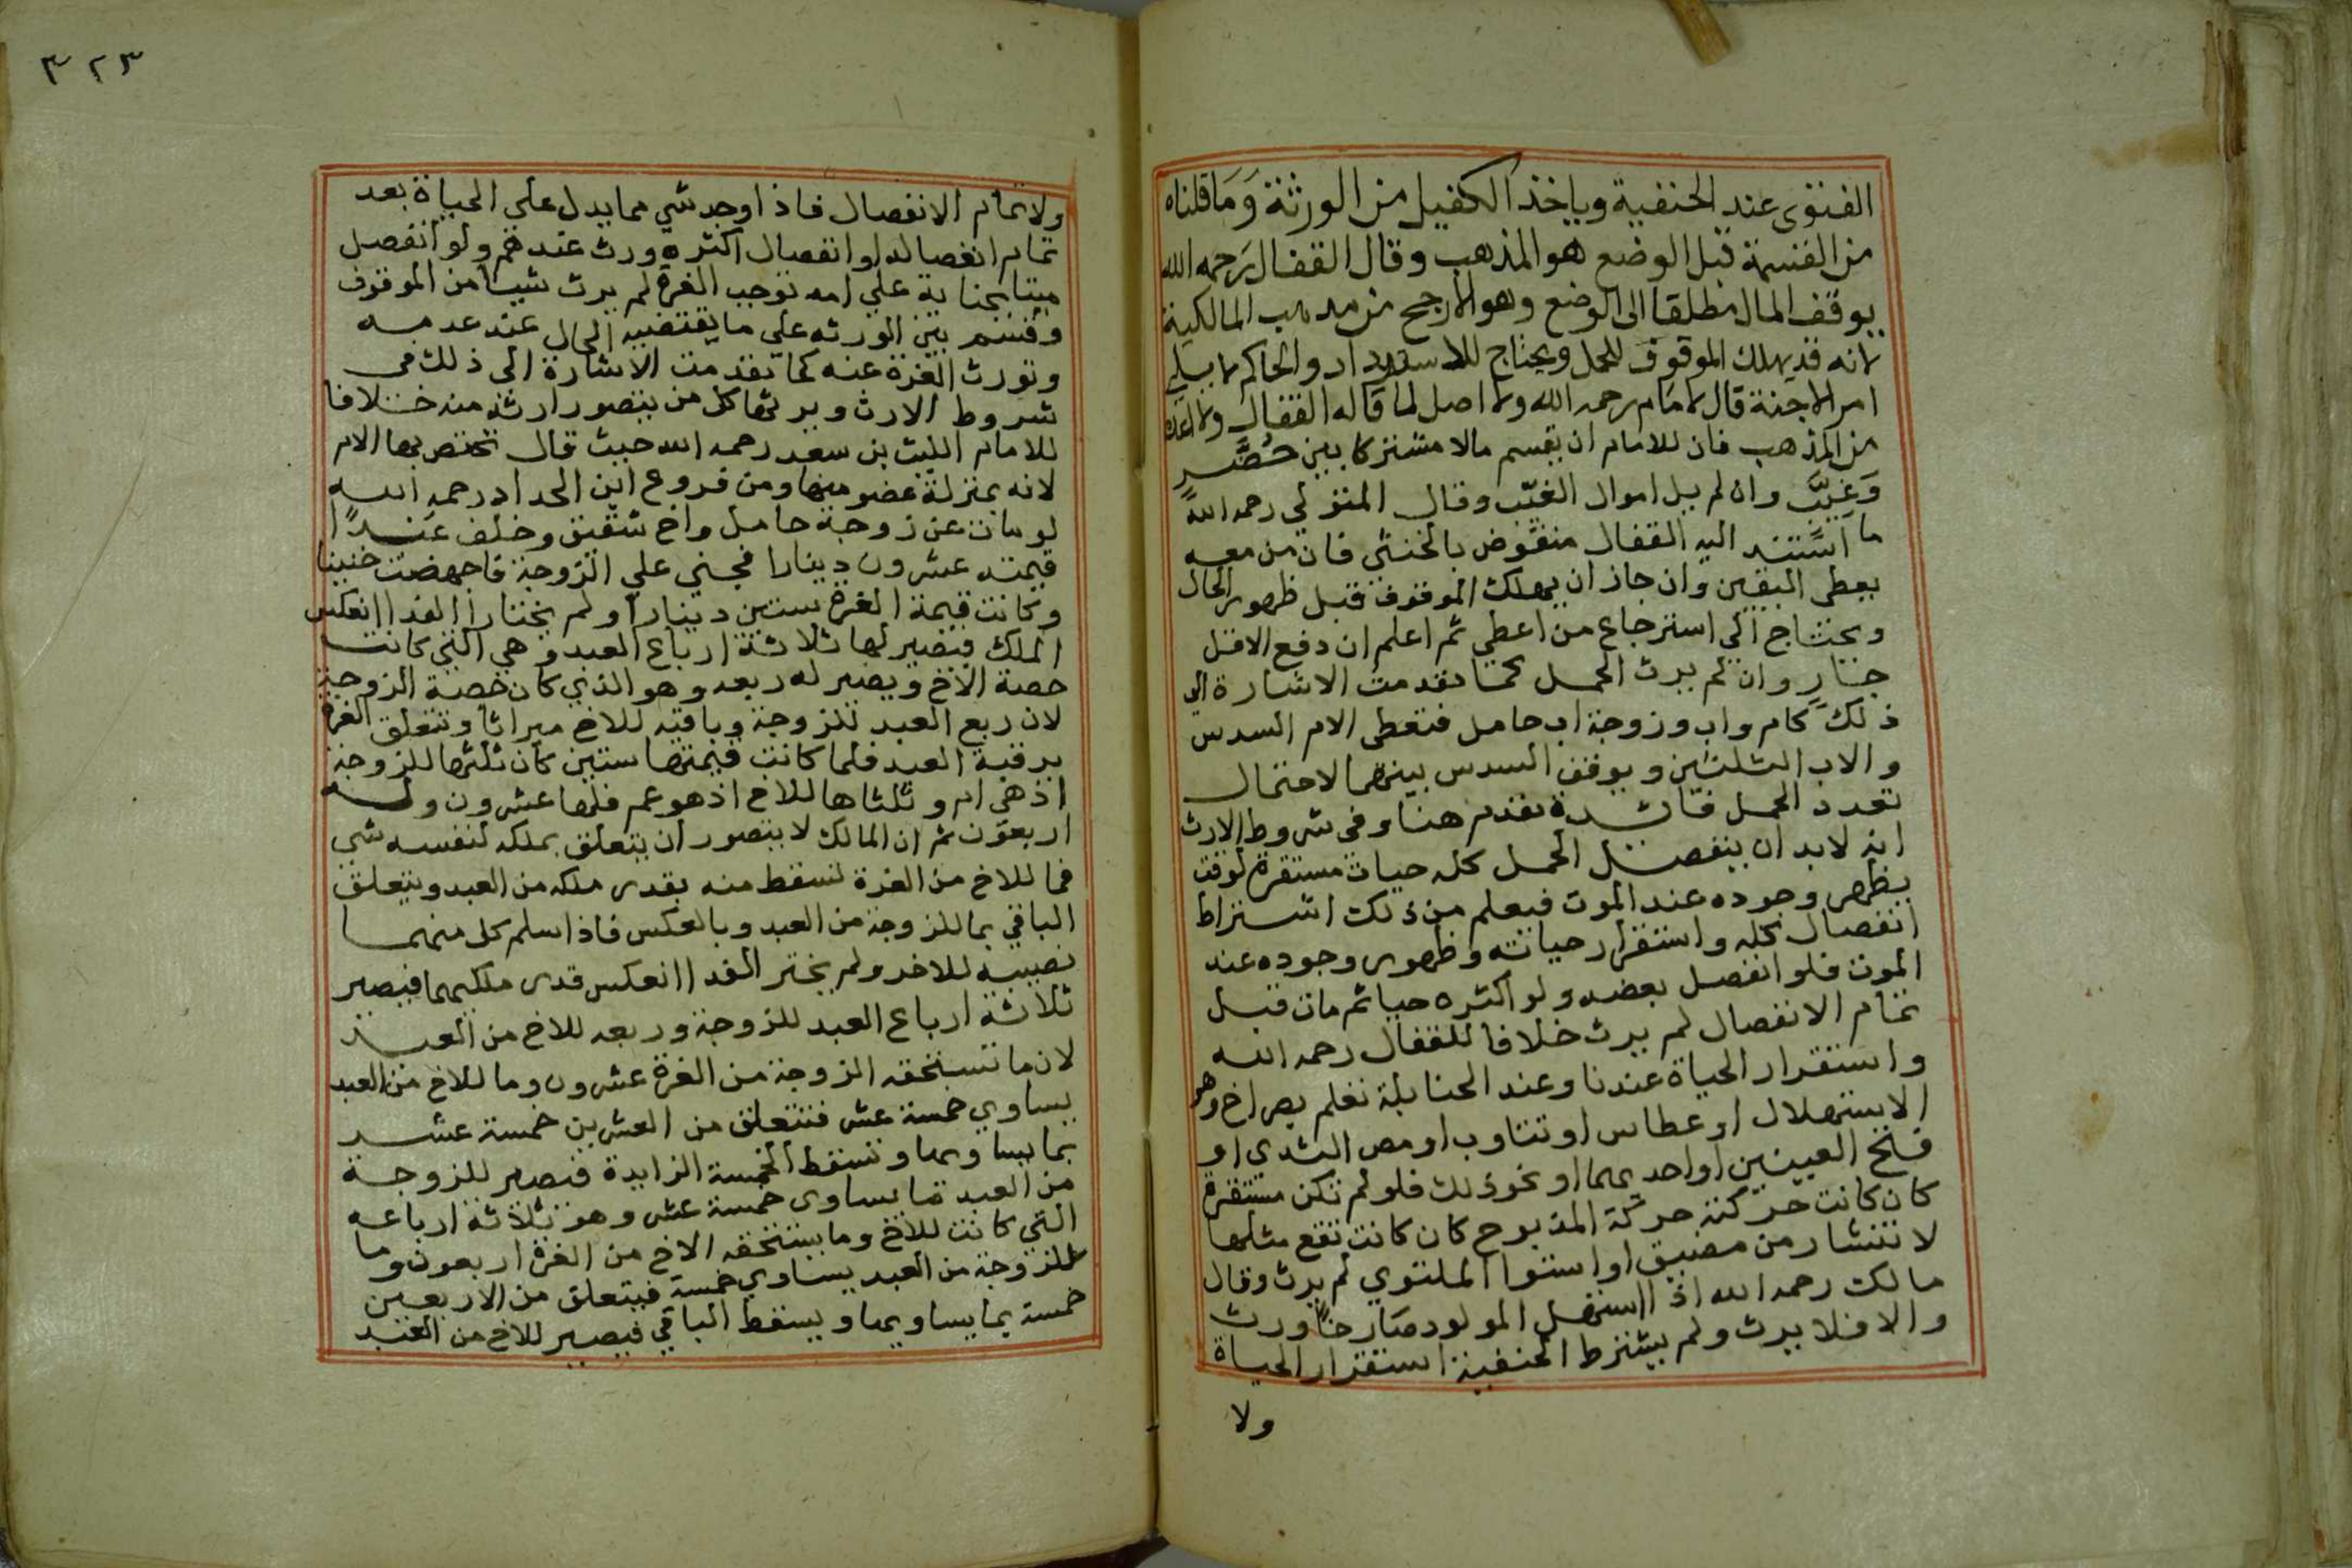 الفتوى عند الحنفية وياخذ الكفيل من الورثة وَمَا قلناه
من القسمة قبل الوضع هو المذهب وقال القفال رَحمه الله
يوقف المال مطلقا الى الوضع وهو الارجح من مذهب المالكية
لانه قد يهلك الموقوف للحمل ويحتاج للاسترداد والحاكم لا يلي
امر الاجنة قال الامَام رحمه الله ولا اصل لما قاله القفال
من المذهب فان للامام ان يقسم مالا مشتركا بين حُضَّر
وَغيَّب وان لم يل اموال الغيّب وقال المتولي رحمه الله
ما استند اليه القفال منقوض بالخنثى فان من معه
يعطى اليقين وان جاز ان يهلك الموقوف قبل ظهور الحال
ويحتاج الي استرجاع من اعطي ثم اعلم ان دفع الاقل
جَارٍ وان لم يرث الحمل كما تقدمت الاشارة الى
ذلك كام واب وزوجة اب حامل فتعطى الام السدس
والاب الثلثين ويوقف السدس بينهما لاحتمال
تعدد الحمل فائدة تقدم هنا وفي شروط الارث
انه لابد ان ينفصل الحمل كله حيات مستقرة لوقت
يظهر وجوده عند الموت فيعلم من ذلك اشتراط
انفصال كله واستقرار حياته وظهور وجوده عند
الموت فلو انفصل بعضه ولو اكثره حيا ثم مات قبل
تمام الانفصال لم يرث خلافا للقفال رحمه الله
واستقرار الحياة عندنا وعند الحنابلة تعلم بصراخ وهو
الاستهلال او عطاس او تثاوب او مص الثدي او
فتح العينين او احديهما او نحو ذلك فلو لم تكن مستقرة
كان كانت حركته حركة المذبوح كان كانت تقع مثلها
لانتشار من مضيق او استوا الملتوي لم يرث وقال
مالك رحمه الله اذا استهل المولود صَارخًا ورث
والا فلا يرث ولم يشترط الحنفية استقرار الحياة
ولا
٣٢٣
ولا تمام الانفصال فاذا وجد شي مما يدل علي الحياة بعد
تمام انفصاله او انفصال اكثره ورث عندهم ولو انفصل
ميتا بجناية علي امه توجب الغرة لم يرث شيا من الموقوف
وقسم بين الورثه على ما يقتضيه الحال عند عدمه
وتورث الغرة عنه كما تقدمت الاشارة الى ذلك في
شروط الارث ويرثها كل من يتصور ارثه منه خلافا
للامام الليث بن سعد رحمه الله حيث قال تختص بها الام
لانه بمنزلة عضو منها ومن فروع ابن الحداد رحمه الله
لو مات عن زوجة حامل واخ شقيق وخلف عَبدًا
قيمته عشرون دينارا فجني علي الزوجة فاجهضت جنينا
وكانت قيمة الغرة ستين دينارا ولم يختارا الفدا انعكس
الملك فيصير لها ثلاثة ارباع العبد وهي التي كانت
حصة الاخ ويصير له ربعه وهو الذي كان حصة الزوجة
لان ربع العبد للزوجة وباقيه للاخ ميراثا وتتعلق الغرة
برقبة العبد فلما كانت قيمتها ستين كان ثلثها للزوجة
اذ هي ام وثلثاها للاخ اذ هو عم فلها عشرون وله
اربعون ثم ان المالك لا يتصور ان يتعلق بملكه لنفسه شي
فما للاخ من الغرة تسقط منه بقدر ملكه من العبد ويتعلق
الباقي بما للزوجة من العبد وبالعكس فاذا سلم كل منهما
نصيبه للاخر ولم يختر الفدا انعكس قدر ملكيهما فيصير
ثلاثة ارباع العبد للزوجة وربعه للاخ من العبد
لان ما تستحقه الزوجة من الغرة عشرون وما للاخ من العبد
يساوي خمسة عشر فتتعلق من العشرين خمسة عشر
بما يساويها وتسقط الخمسة الزايدة فتصير للزوجة
من العبد ما يساوى خمسة عشر وهو ثلاثة ارباعه
التي كانت للاخ وما يستحقه الاخ من الغرة اربعون وما
للزوجة من العبد يساوي خمسة فيتعلق من الاربعين
خمسة بما يساويها ويسقط الباقي فيصير للاخ من العبد